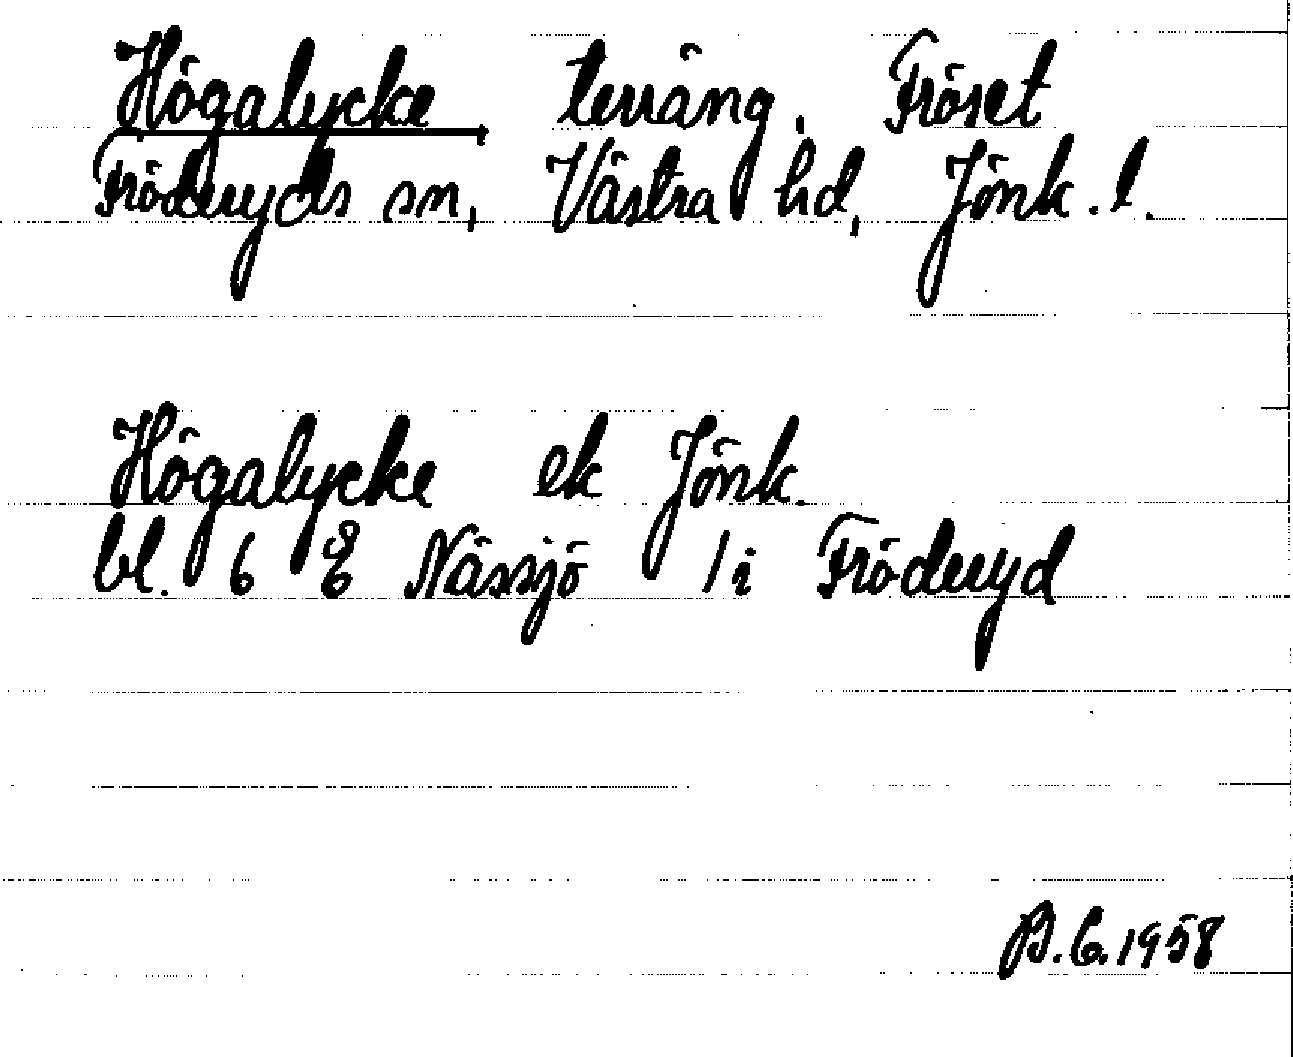 Högalycke, terräng, Fröset
Fröderyds sn, Västra hd, Jönk. l.
Högalycke ek Jönk.
bl. 6 g E Nässjö / i Fröderyd
B.G. 1958